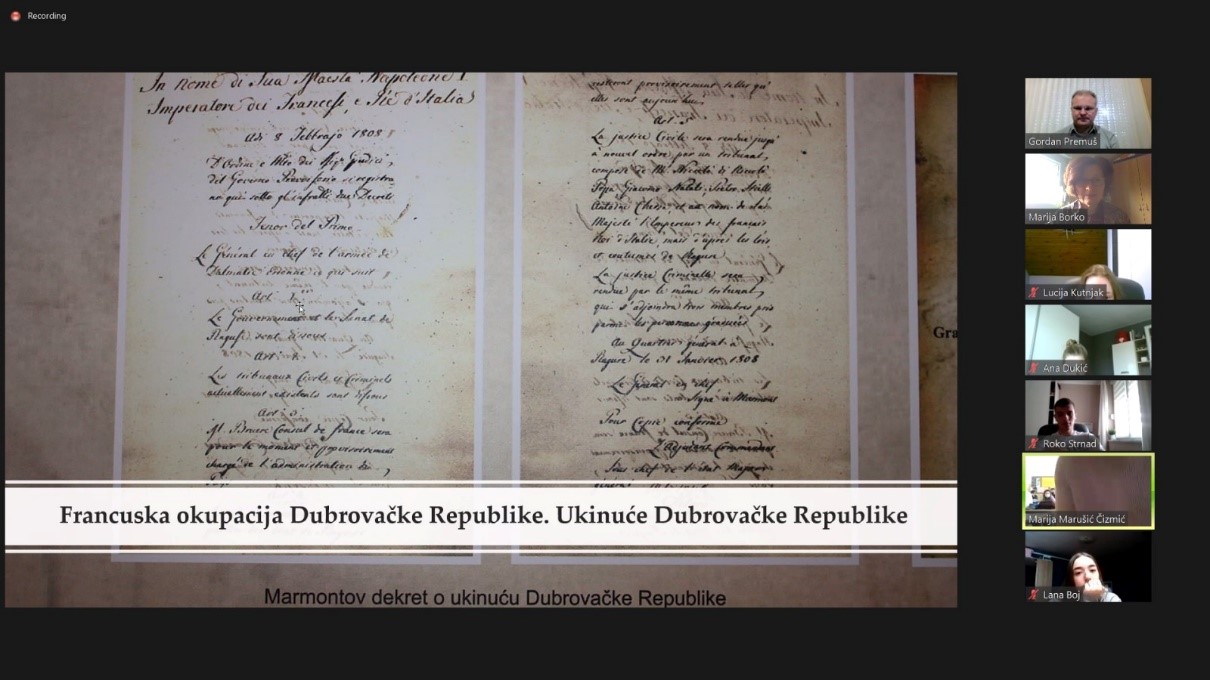 Recording
In nome di Sua Maestà Napoleone I
Imperatore dei Francesi, e Rè d'Italia
Adi 8 Febbrajo 1808
Tenor del Primo
Le Général en chef de l'armée de
Dalmatie ordonne ce qui suit
Art.
Le Gouvernement et le Senat de
Raguse sont dissous
Art.
Les tribunaux Civils et Criminels
actuellement existents sont dissous
Art. 3
Mr. Bruere Consul de france sera
pour le moment et provisoirement
chargé de l'administration de
provisoirement telles qu'
elles sont aujourd'hui
Art.
La justice Civile sera rendue jusqu'
à nouvel ordre par un tribunal,
composé de
Majesté l'Empereur des français
Roi d'Italie, mais d'après les lois
et coutumes de Raguse
La justice Criminelle sera
rendue par le même tribunal,
qui s'adjoindra trois membres pris
parmi les personnes
Au Quartier général à
Raguse le 31 Janvier 1808
Le Général en chef
Signé à Marmont
Pour Copie conforme
L'Adjudant Commandant
Sous chef de l'état Major
Gra
Francuska okupacija Dubrovačke Republike. Ukinuće Dubrovačke Republike
Marmontov dekret o ukinuću Dubrovačke Republike
Gordan Premuš
Marija Borko
Lucija Kutnjak
Ana Dukić
Roko Strnad
Marija Marušić Čizmić
Lana Boj